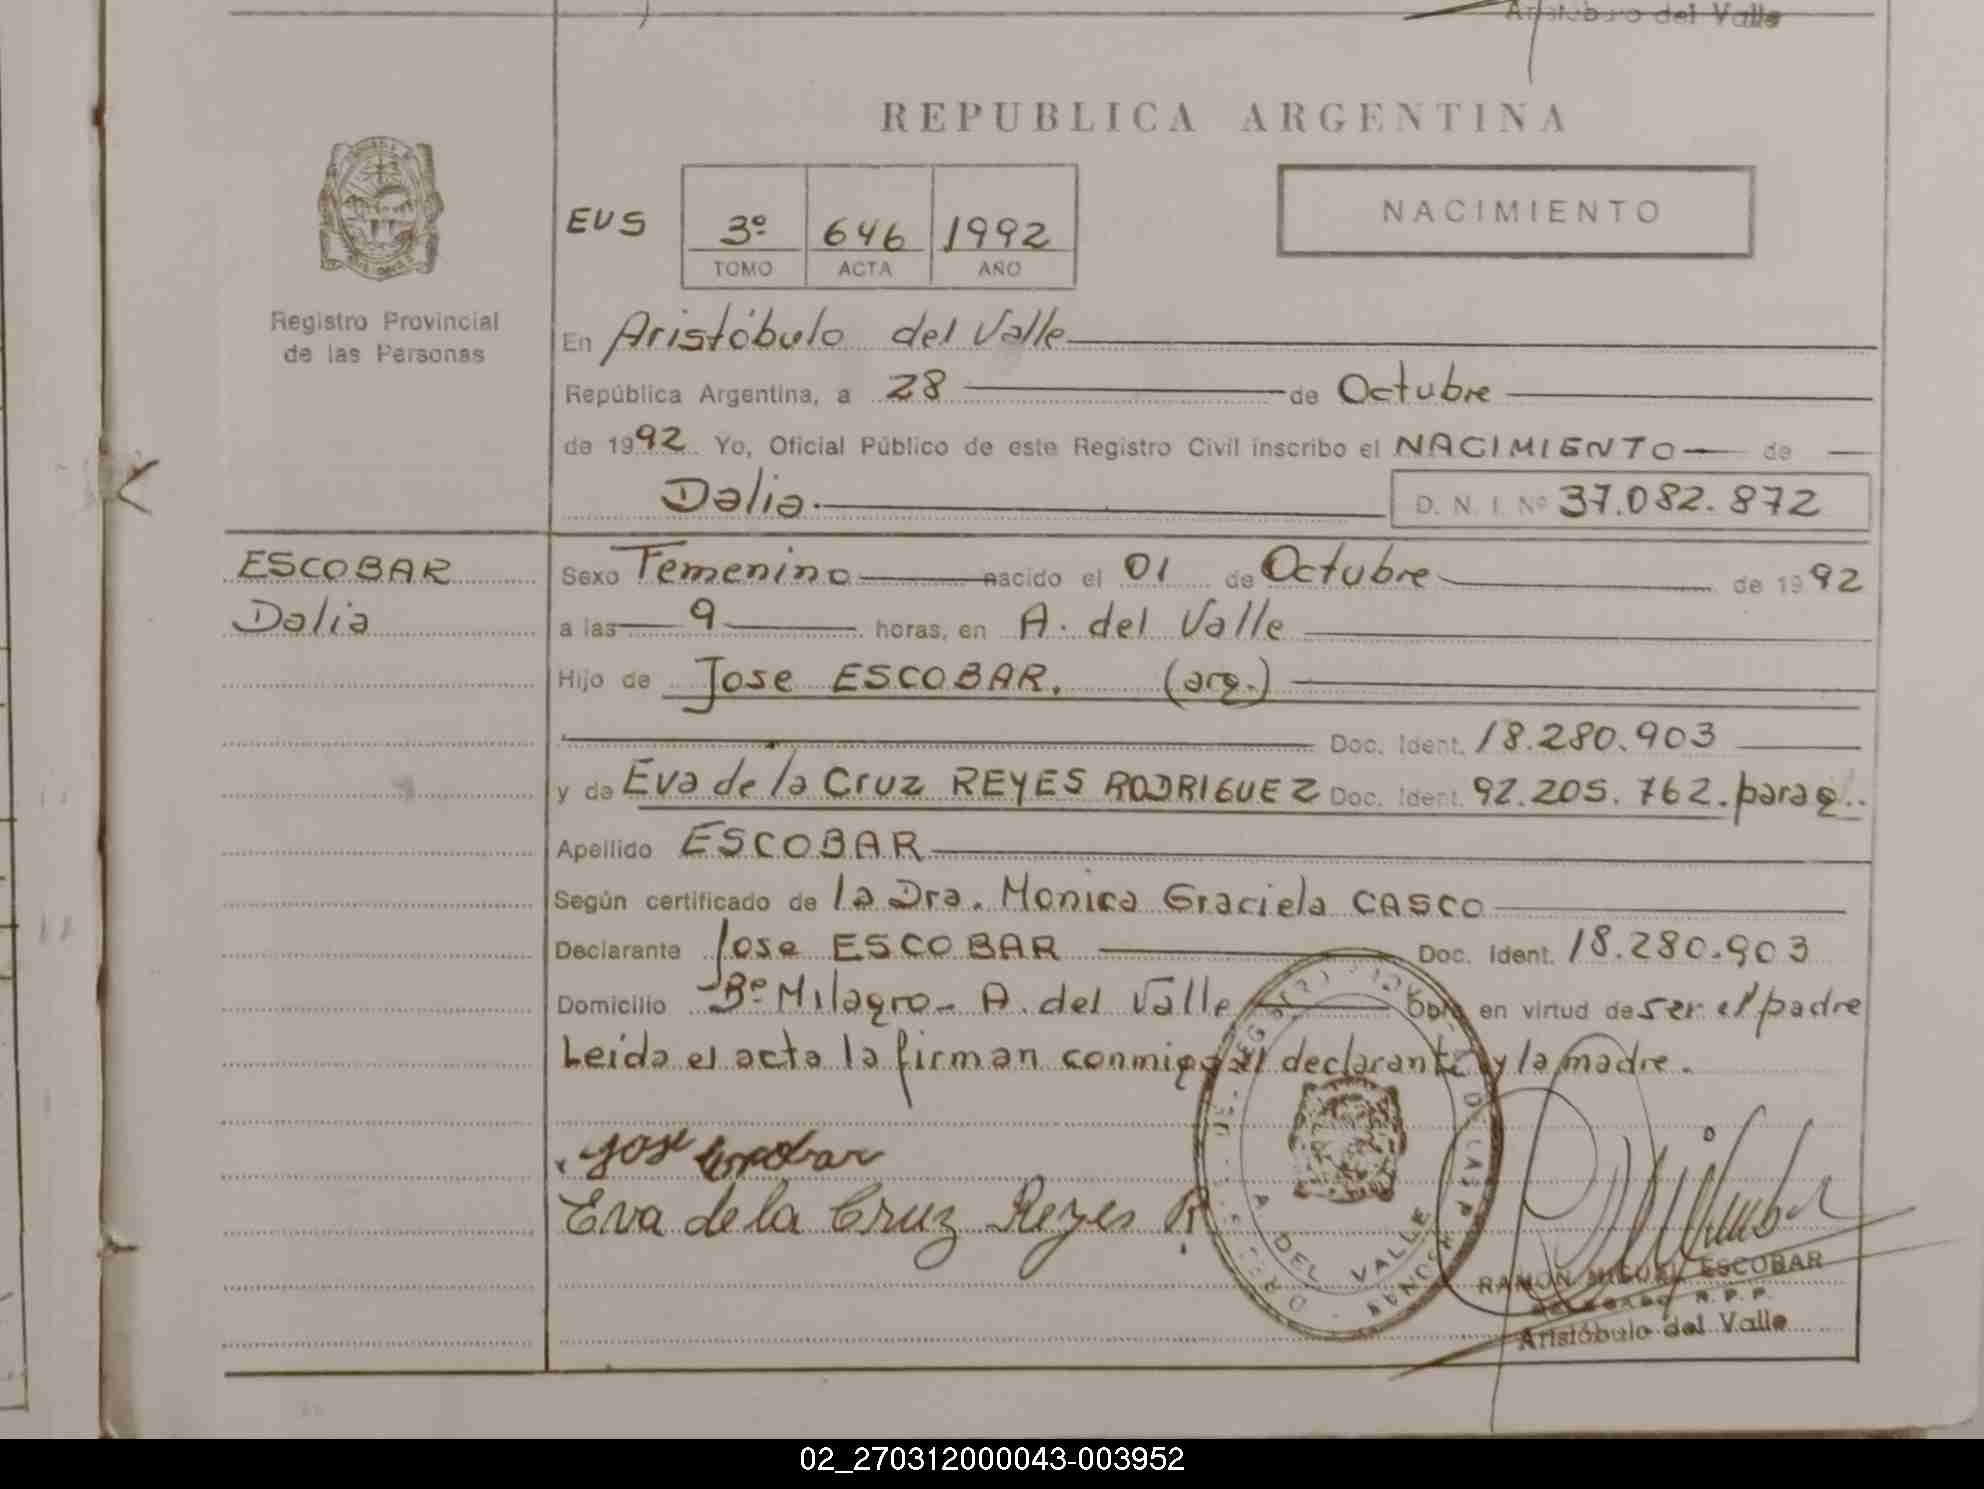 Aristóbulo del Valle
REPUBLICA ARGENTINA
NACIMIENTO
EUS
3º 646 1992
TOMO ACTA AÑO
Registro Provincial
de las Personas
En Aristóbulo del Valle
República Argentina, a 28 de Octubre
de 1992. Yo, Oficial Público de este Registro Civil inscribo el NACIMIENTO de
Dalia. D. N. I. Nº 37.082.872
ESCOBAR
Dalia
Sexo Femenino nacido el 01 de Octubre de 1992
a las 9 horas, en A. del Valle
Hijo de Jose ESCOBAR. (arg.)
Doc. Ident. 18.280.903
y de Eva de la Cruz REYES RODRIGUEZ Doc. Ident. 92.205.762. parag.
Apellido ESCOBAR
Según certificado de la Dra. Monica Graciela CASCO
Declarante Jose ESCOBAR Doc. Ident. 18.280.903
Domicilio Bº Milagro - A. del Valle Obra en virtud de ser el padre
Leida el acta la firman conmigo el declarante y la madre.
Jose Escobar
Eva de la Cruz Reyes R.
A DEL VALLE
RAMON MIGUEL ESCOBAR
DELEGADO R. P. P.
Aristóbulo del Valle
02_270312000043-003952